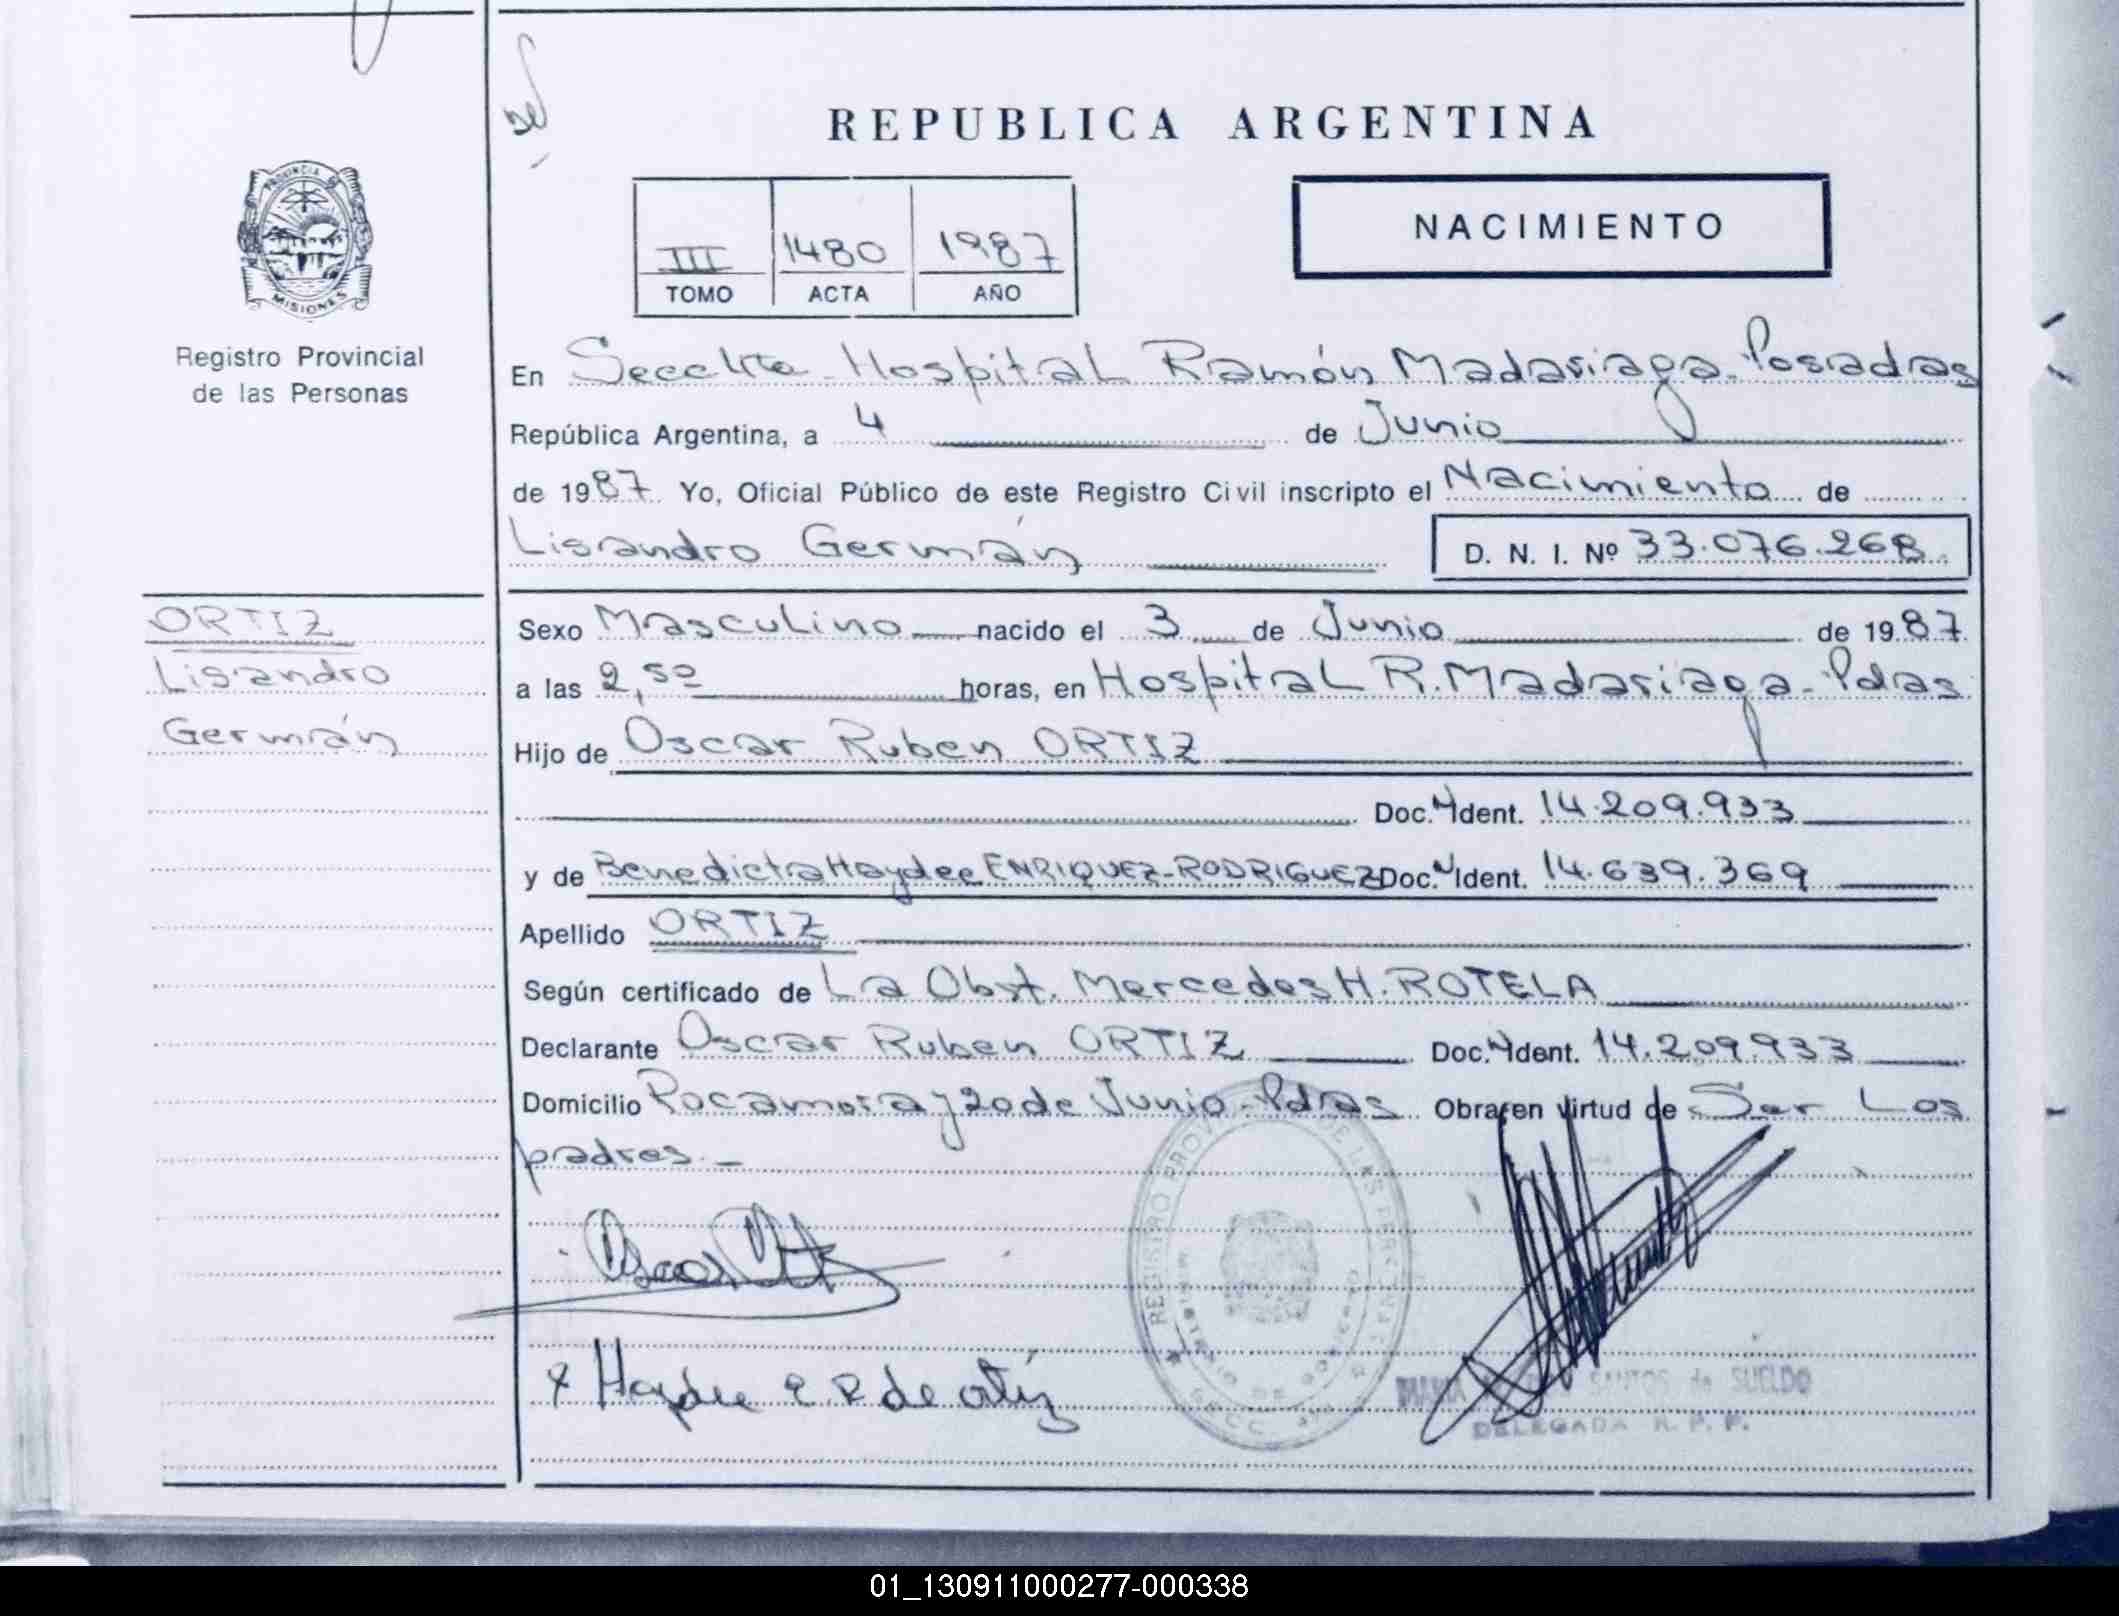 REPUBLICA ARGENTINA
PROVINCIA DE
MISIONES
Registro Provincial
de las Personas
III 1480 1987
TOMO ACTA AÑO
NACIMIENTO
En Secc 4ta - Hospital Ramón Madariaga - Posadas
República Argentina, a 4 de Junio
de 1987 Yo, Oficial Público de este Registro Civil inscripto el Nacimiento de
Lisandro Germán
D. N. I. Nº 33.076.268
ORTIZ
Lisandro
Germán
Sexo Masculino nacido el 3 de Junio de 1987
a las 2,50 horas, en Hospital R. Madariaga - Pdas
Hijo de Oscar Ruben ORTIZ
Doc. Ident. 14.209.933
y de Benedicta Haydee ENRIQUEZ-RODRIGUEZ Doc. Ident. 14.639.369
Apellido ORTIZ
Según certificado de La Obst. Mercedes H. ROTELA
Declarante Oscar Ruben ORTIZ Doc. Ident. 14.209.933
Domicilio Rocamora y 20 de Junio - Pdas Obra en virtud de Ser Los
padres -
REGISTRO PROVINCIAL DE LAS PERSONAS
Haydee E. R de Ortiz
SANTOS de SUELDO
DELEGADA R. P. P.
01_130911000277-000338